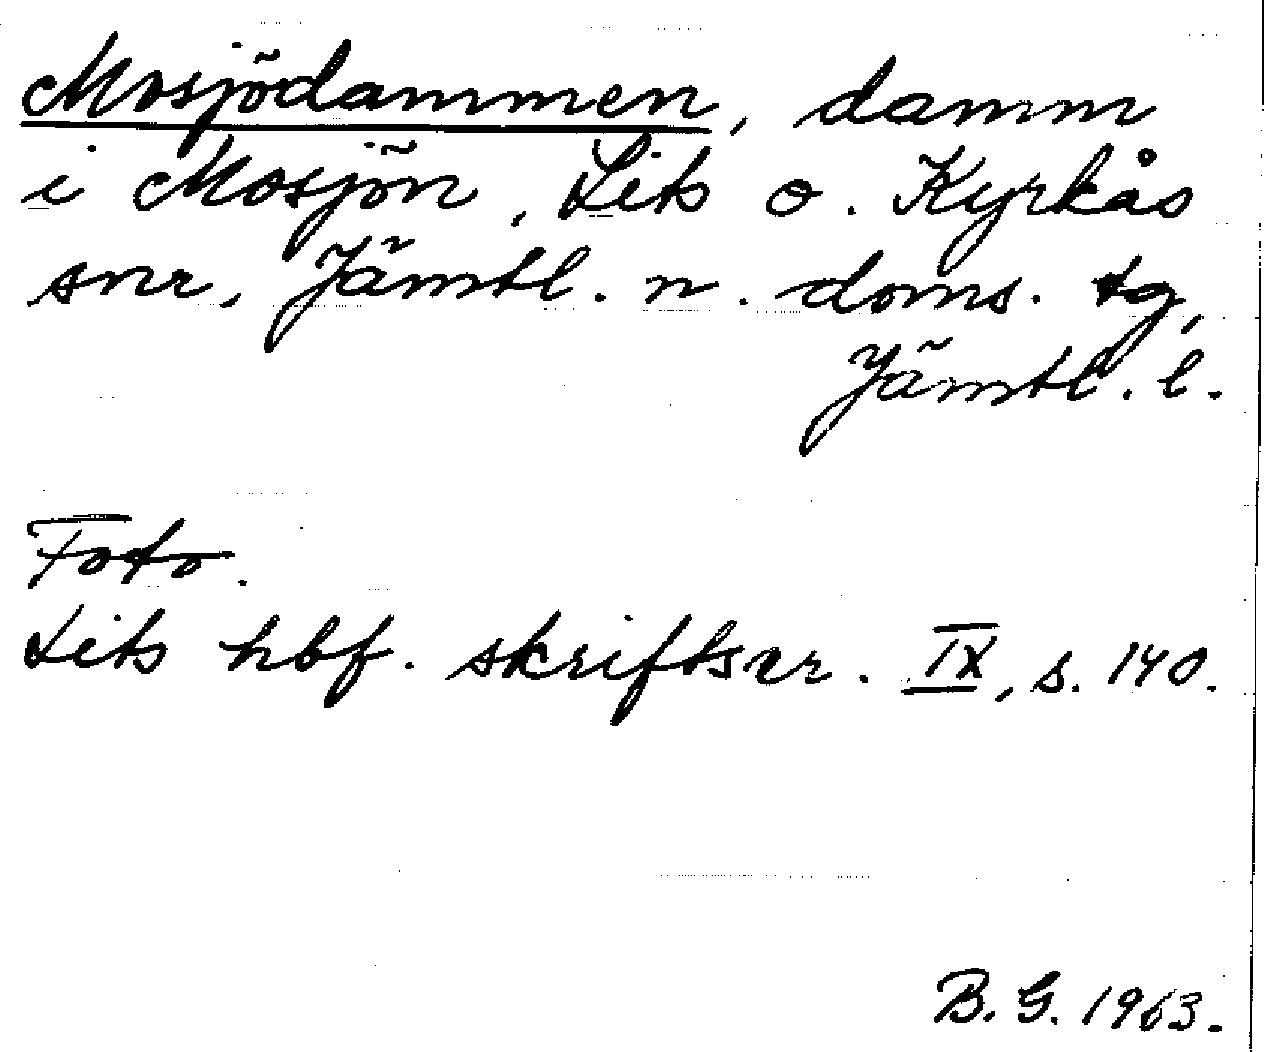 Mosjödammen, damm
i Mosjön, Lits o. Kyrkås
snr, Jämtl. n. doms. tg,
Jämtl. l.
Foto.
Lits hbf. skriftser. IX, s. 140.
B. G. 1963.